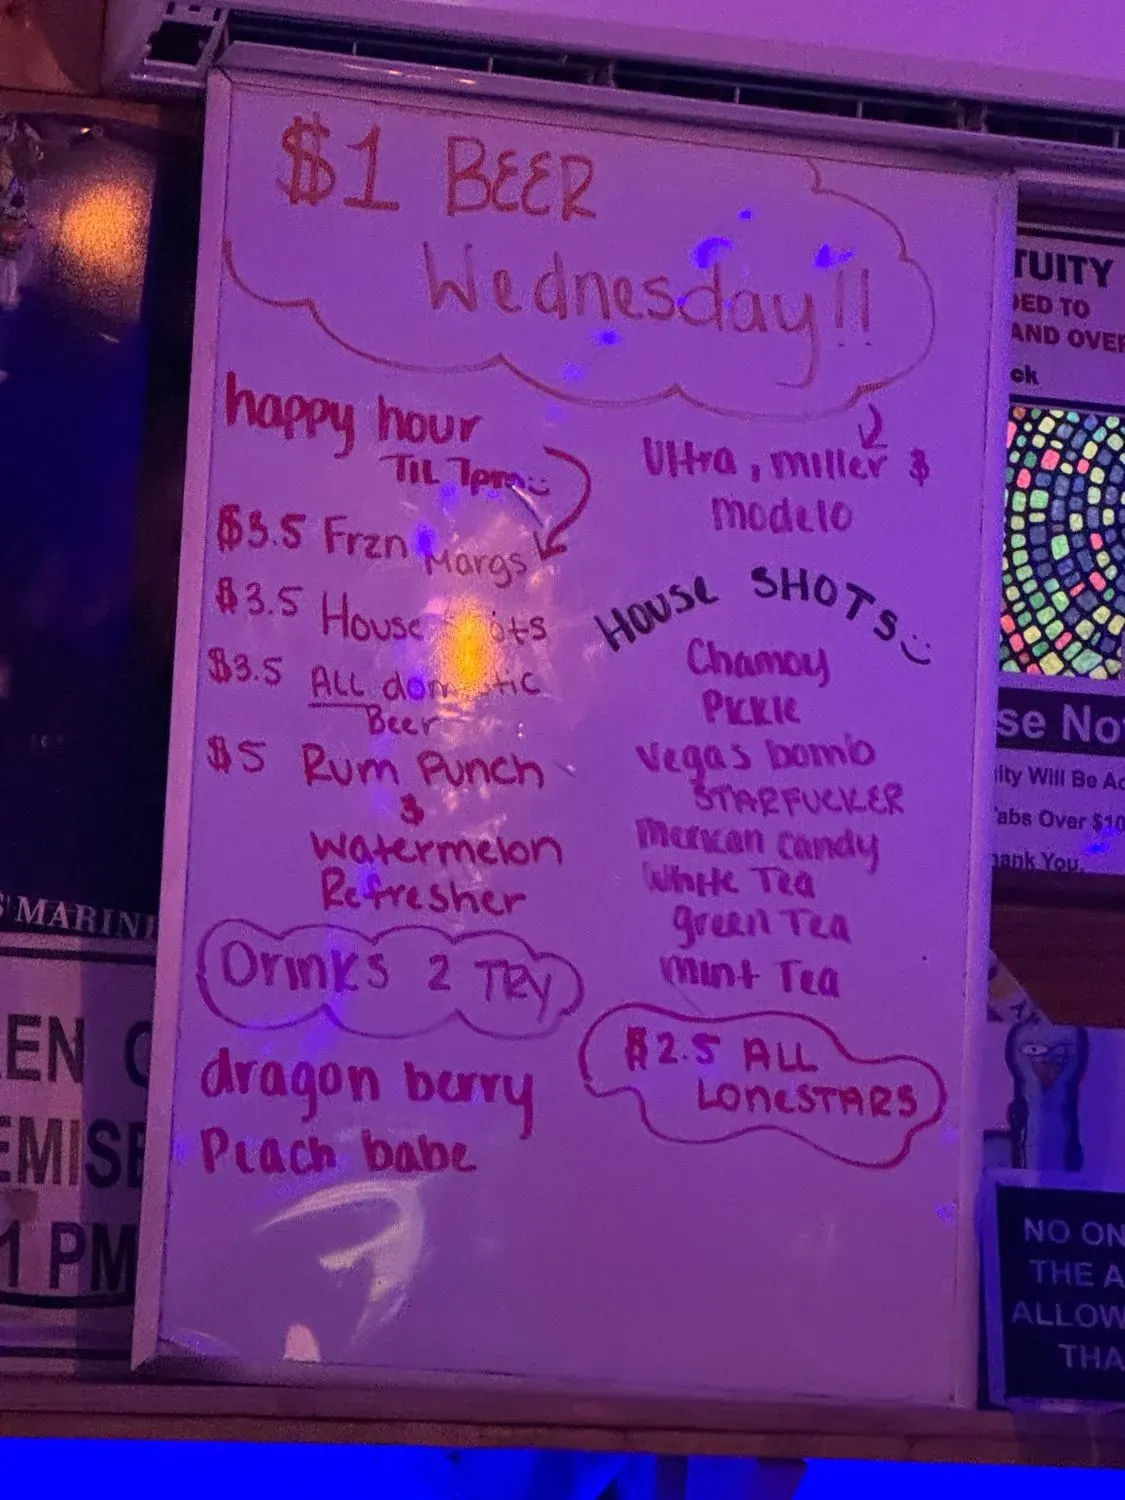 $1 BEER
Wednesday!!
happy hour
TIL 7pm
$3.5 Frzn Margs
$3.5 House
$3.5 ALL domestic
Beer
$5 Rum Punch
&
Watermelon
Refresher
Drinks 2 TRY
dragon berry
Peach babe
Ultra, miller &
modelo
HOUSE SHOTS
Chamoy
Pickle
Vegas bomb
STARFUCKER
mexican candy
White Tea
green Tea
mint Tea
$2.5 ALL
LONESTARS
TUITY
DED TO
AND OVER
ck
se No
ity Will Be Ac
Tabs Over $10
hank You
MARIN
EN
EMISE
1 PM
NO ON
THE A
ALLOW
THA